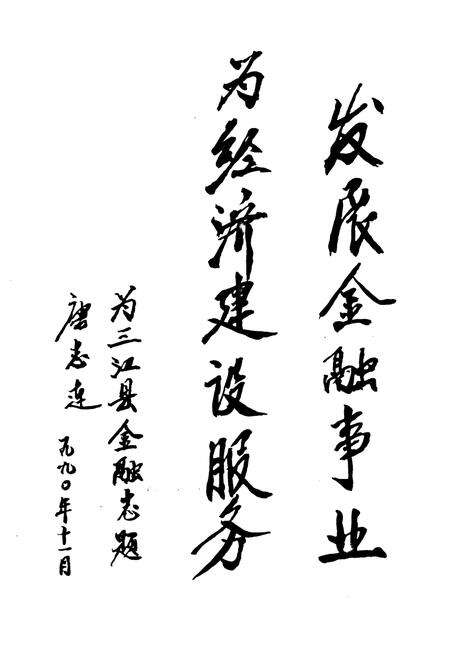 发展金融事业
为经济建设服务
为三江县金融志题
唐志连
一九九〇年十一月